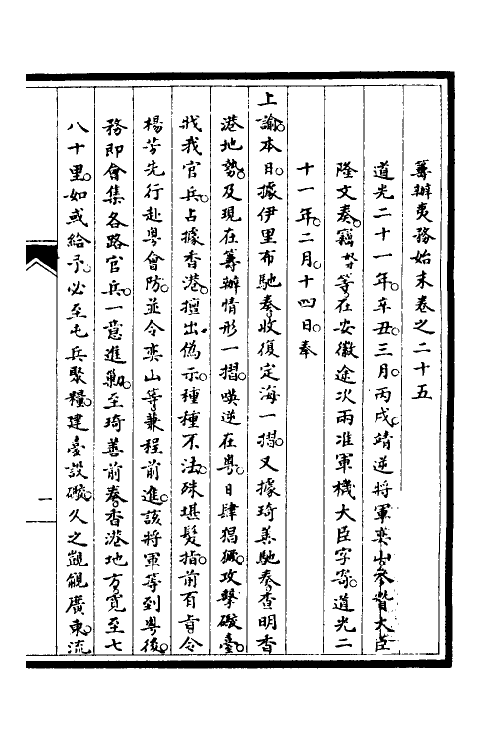 籌辦夷務始末卷之二十五
道光二十一年。辛丑。三月。丙戌。靖逆將軍奕山參贊大臣
隆文奏。竊奴等在安徽途次兩准軍機大臣字寄。道光二
十一年。二月。十四日。奉
上諭。本日。據伊里布馳奏收復定海一摺。又據琦善馳奏查明香
港地勢。及現在籌辦情形一摺。𠸄逆在粵。日肆猖獗。攻擊礮臺。
戕我官兵。占據香港。擅出偽示。種種不法。殊堪髮指。前有旨令
楊芳先行赴粵會防。並令奕山等兼程前進。該將軍等到粵後。
務即會集各路官兵。一意進勦。至琦善前奏香港地方。寬至七
八十里。如或給予。必至屯兵聚糧。建臺設礮。久之覬覦廣東。流
一